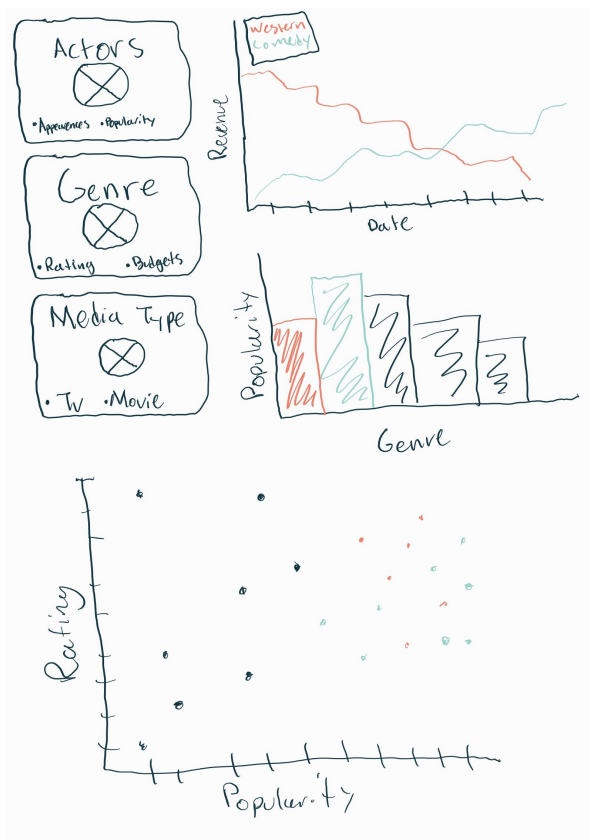 Actors
• Appearences • Popularity
Genre
• Rating • Budgets
Media Type
• Tv • Movie
Western
Comedy
Revenue
Date
Popularity
Genre
Rating
Popularity